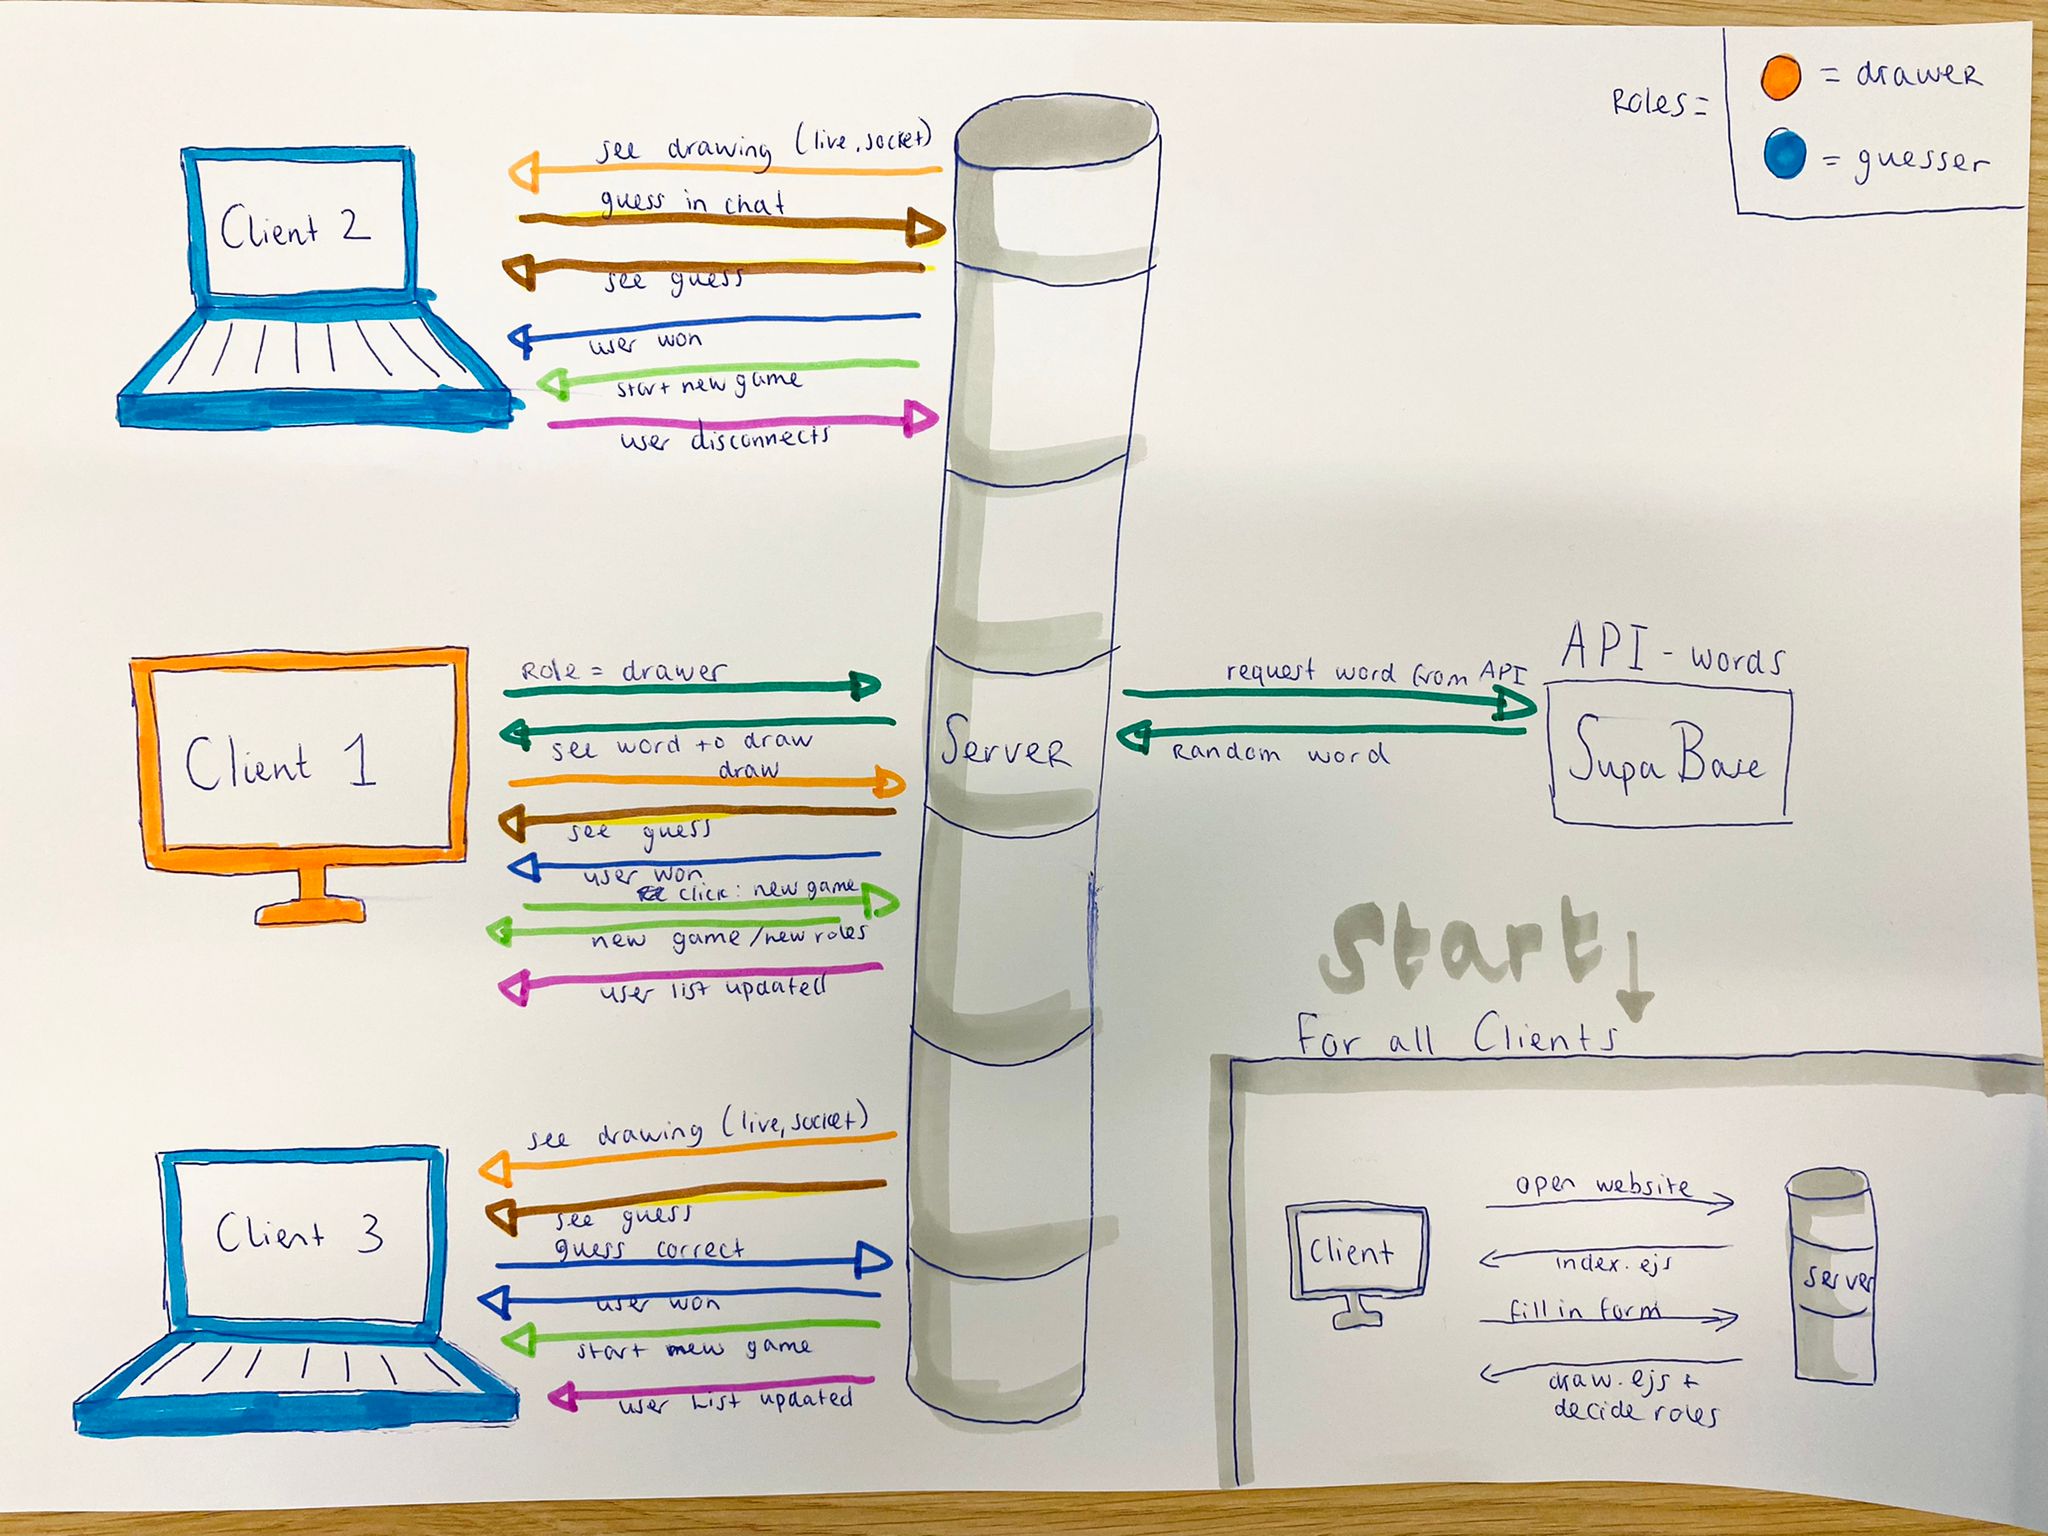 Roles =
= drawer
= guesser
Client 2
see drawing (live, socket)
guess in chat
see guess
user won
start new game
user disconnects
Client 1
Role = drawer
see word to draw
draw
see guess
user won
click: new game
new game/new roles
user list updated
Server
request word from API
Random word
API - words
SupaBase
Client 3
see drawing (live, socket)
see guess
guess correct
user won
start new game
user List updated
Start
For all Clients
Client
open website
index.ejs
fill in form
draw.ejs +
decide roles
server